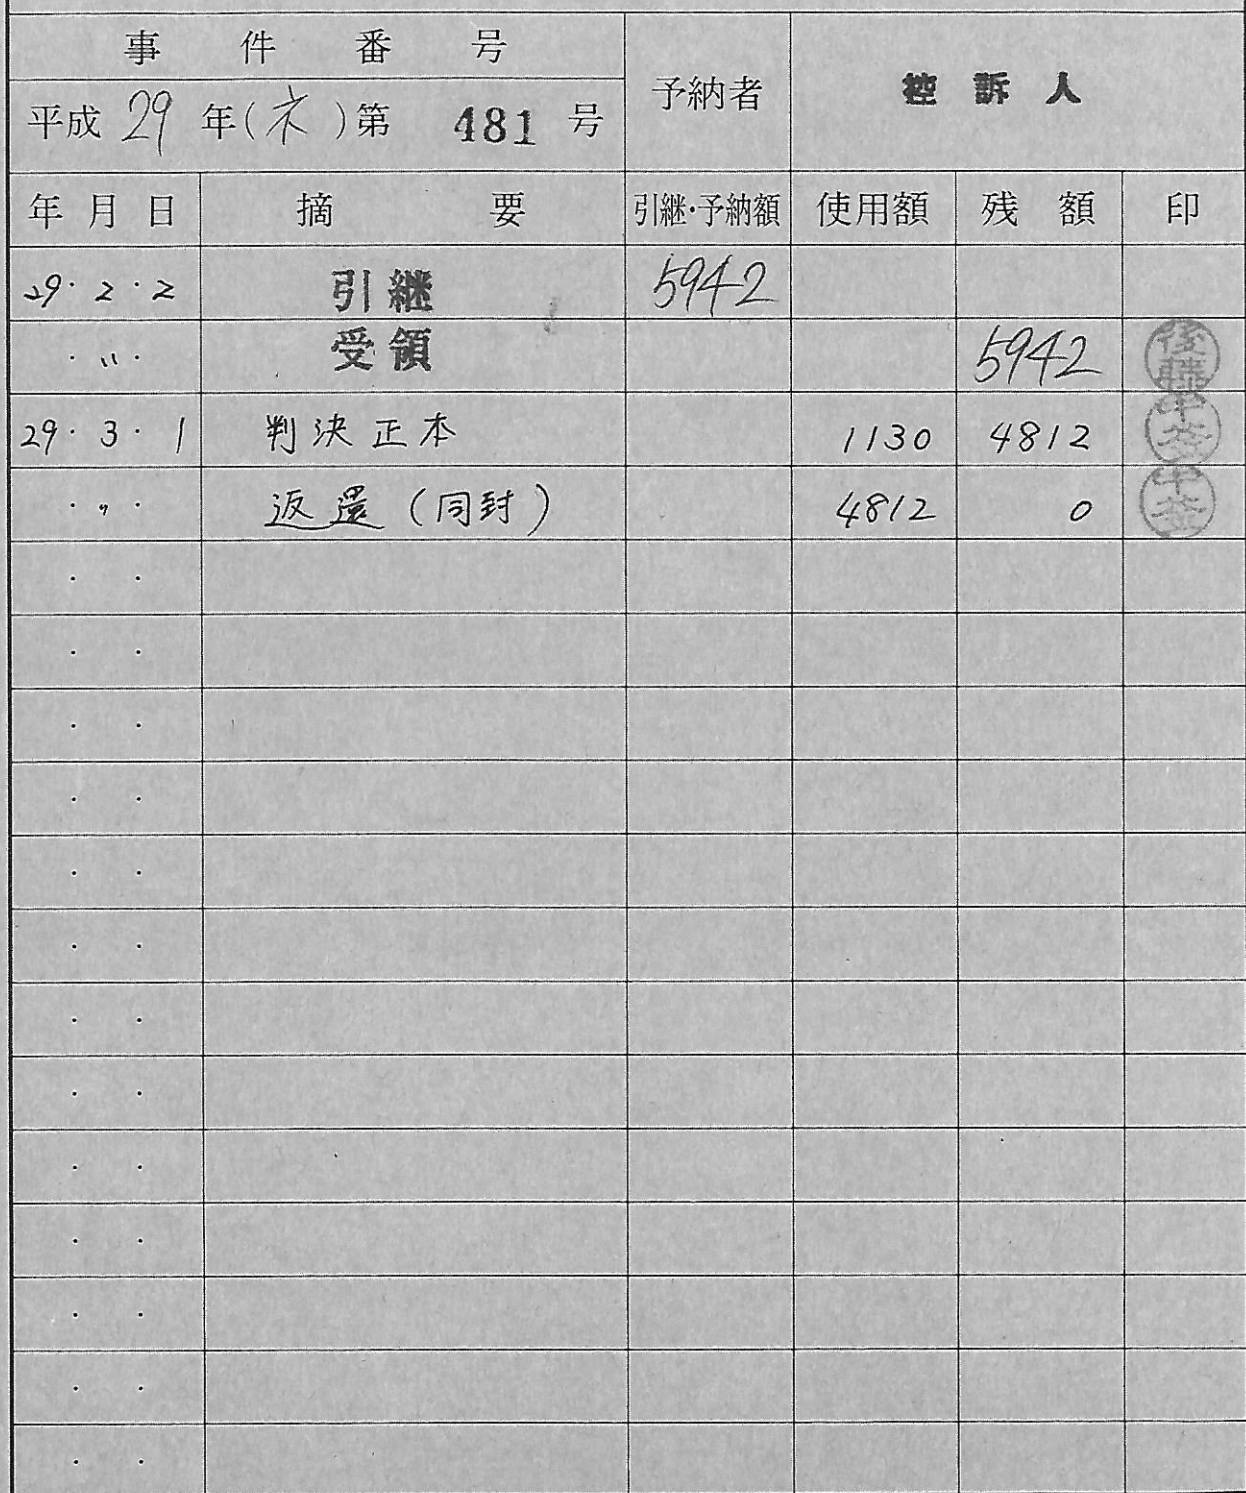 事件番号
平成29年(ネ)第481号
予納者 控訴人
年月日 摘要 引継・予納額 使用額 残額 印
29・2・2 引継 5942
・〃・ 受領 5942 後藤
29・3・1 判決正本 1130 4812
・〃・ 返還(同封) 4812 0